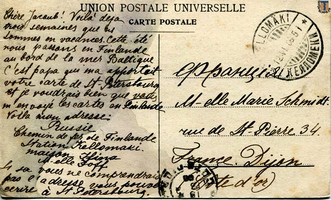 UNION POSTALE UNIVERSELLE
CARTE POSTALE
Chère Jacaub! Voilà déjà
trois semaines que
sommes en vacances. Cette été
nous passons en Finlande
au bord de la mer Baltique
C'est papa qui m'a apporté
votre carte de St. Petersbourg
et je voudrais bien que vous
m'envoyé les cartes en Finlande
Voila mon adresse:
Russie
Chemin de fer de Finlande
Station Kellomäki
maison
M-elle
Si vous ne comprendrais
pas l'adresse vous pouvez
écrire à St. Petersbourg.
KELLOMÄKI
КЕЛЛОМЯКИ
Франція
M-elle Marie Schmidt
rue de St-Pierre 34
France Dijon
Côte d'or